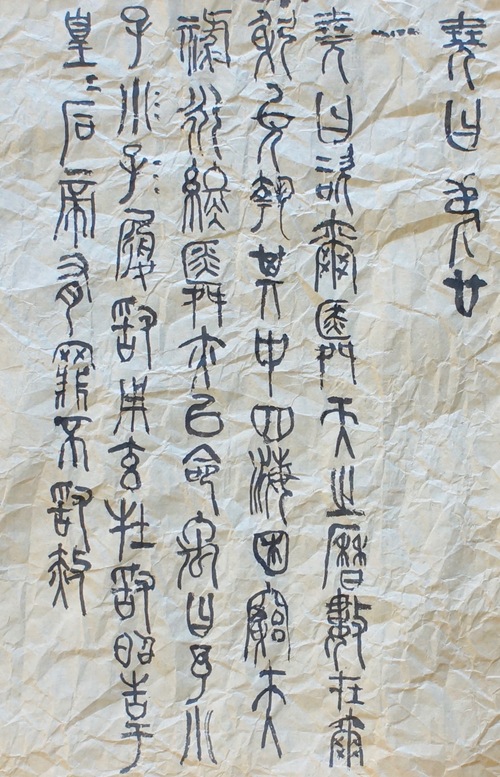 堯曰弟廿
堯曰咨爾舜天之曆數在爾
躬允執其中四海困窮天
祿永終舜亦以命禹曰予小
子小子履敢用玄牡敢昭告于
皇〻后帝有罪不敢赦